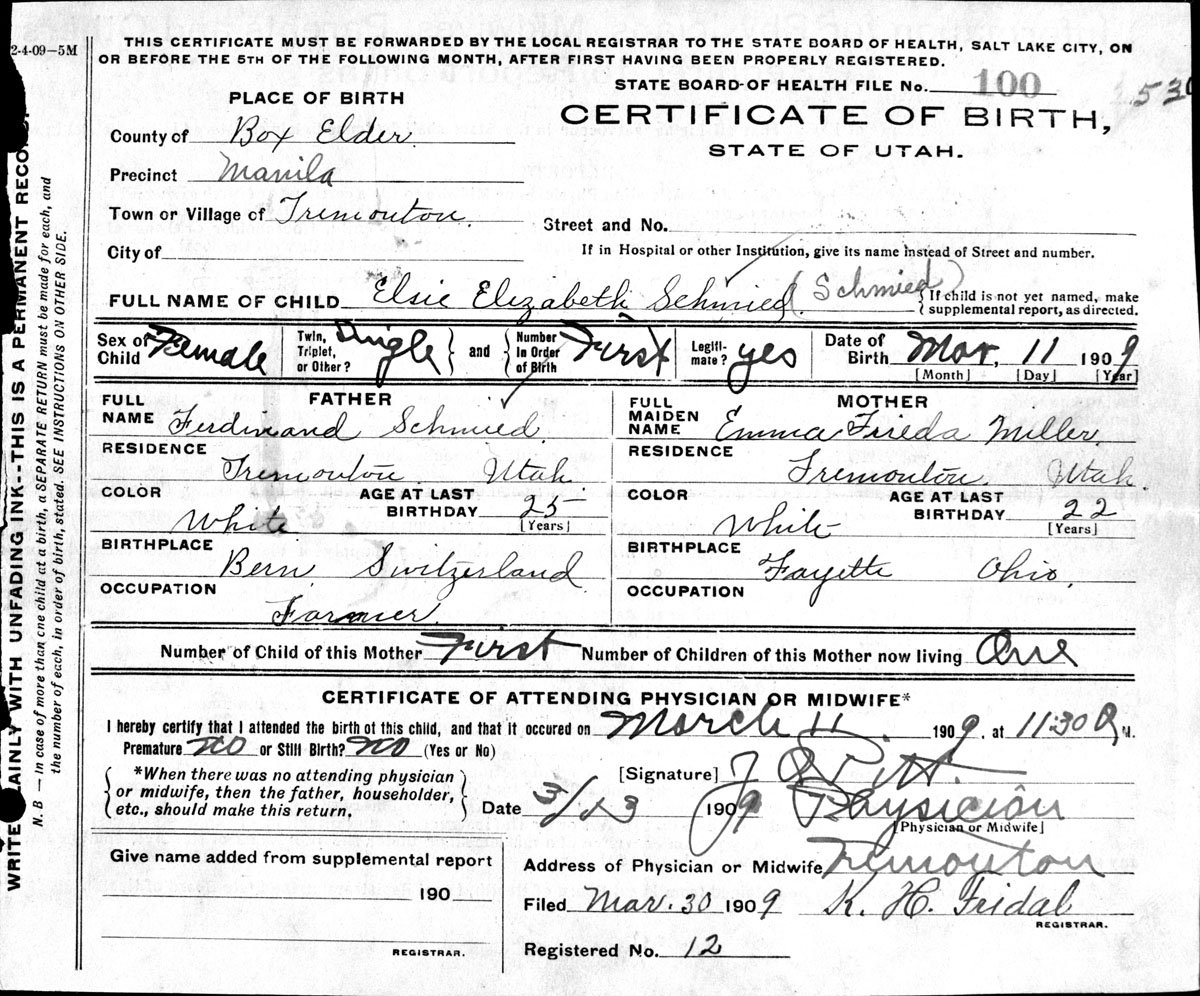 2-4-09—5M
THIS CERTIFICATE MUST BE FORWARDED BY THE LOCAL REGISTRAR TO THE STATE BOARD OF HEALTH, SALT LAKE CITY, ON
OR BEFORE THE 5TH OF THE FOLLOWING MONTH, AFTER FIRST HAVING BEEN PROPERLY REGISTERED.
STATE BOARD OF HEALTH FILE No. 100
530
CERTIFICATE OF BIRTH,
STATE OF UTAH.
PLACE OF BIRTH
County of Box Elder
Precinct Manila
Town or Village of Tremonton
Street and No.
City of
If in Hospital or other Institution, give its name instead of Street and number.
FULL NAME OF CHILD Elsie Elizabeth Schmied (Schmied)
If child is not yet named, make
supplemental report, as directed.
Sex of Child Female
Twin, Triplet, or Other? Single
and
Number in Order of Birth First
Legiti-mate? yes
Date of Birth Mar. 11 1909
[Month] [Day] [Year]
FATHER
FULL NAME Ferdinand Schmied
RESIDENCE Tremonton Utah
COLOR White
AGE AT LAST BIRTHDAY 25
[Years]
BIRTHPLACE Bern Switzerland
OCCUPATION Farmer
MOTHER
FULL MAIDEN NAME Emma Frieda Miller
RESIDENCE Tremonton Utah
COLOR White
AGE AT LAST BIRTHDAY 22
[Years]
BIRTHPLACE Fayette Ohio
OCCUPATION
Number of Child of this Mother First Number of Children of this Mother now living One
CERTIFICATE OF ATTENDING PHYSICIAN OR MIDWIFE*
I hereby certify that I attended the birth of this child, and that it occured on March 11 1909, at 11:30 A M.
Premature No or Still Birth? No (Yes or No)
*When there was no attending physician
or midwife, then the father, householder,
etc., should make this return.
[Signature]
Date 3/23 1909 Physician
[Physician or Midwife]
Give name added from supplemental report
190
REGISTRAR.
Address of Physician or Midwife Tremonton
Filed Mar. 30 1909 K. H. Fridal
REGISTRAR.
Registered No. 12
WRITE PLAINLY WITH UNFADING INK--THIS IS A PERMANENT RECORD.
N. B — In case of more than one child at a birth, a SEPARATE RETURN must be made for each, and
the number of each, in order of birth, stated. SEE INSTRUCTIONS ON OTHER SIDE.